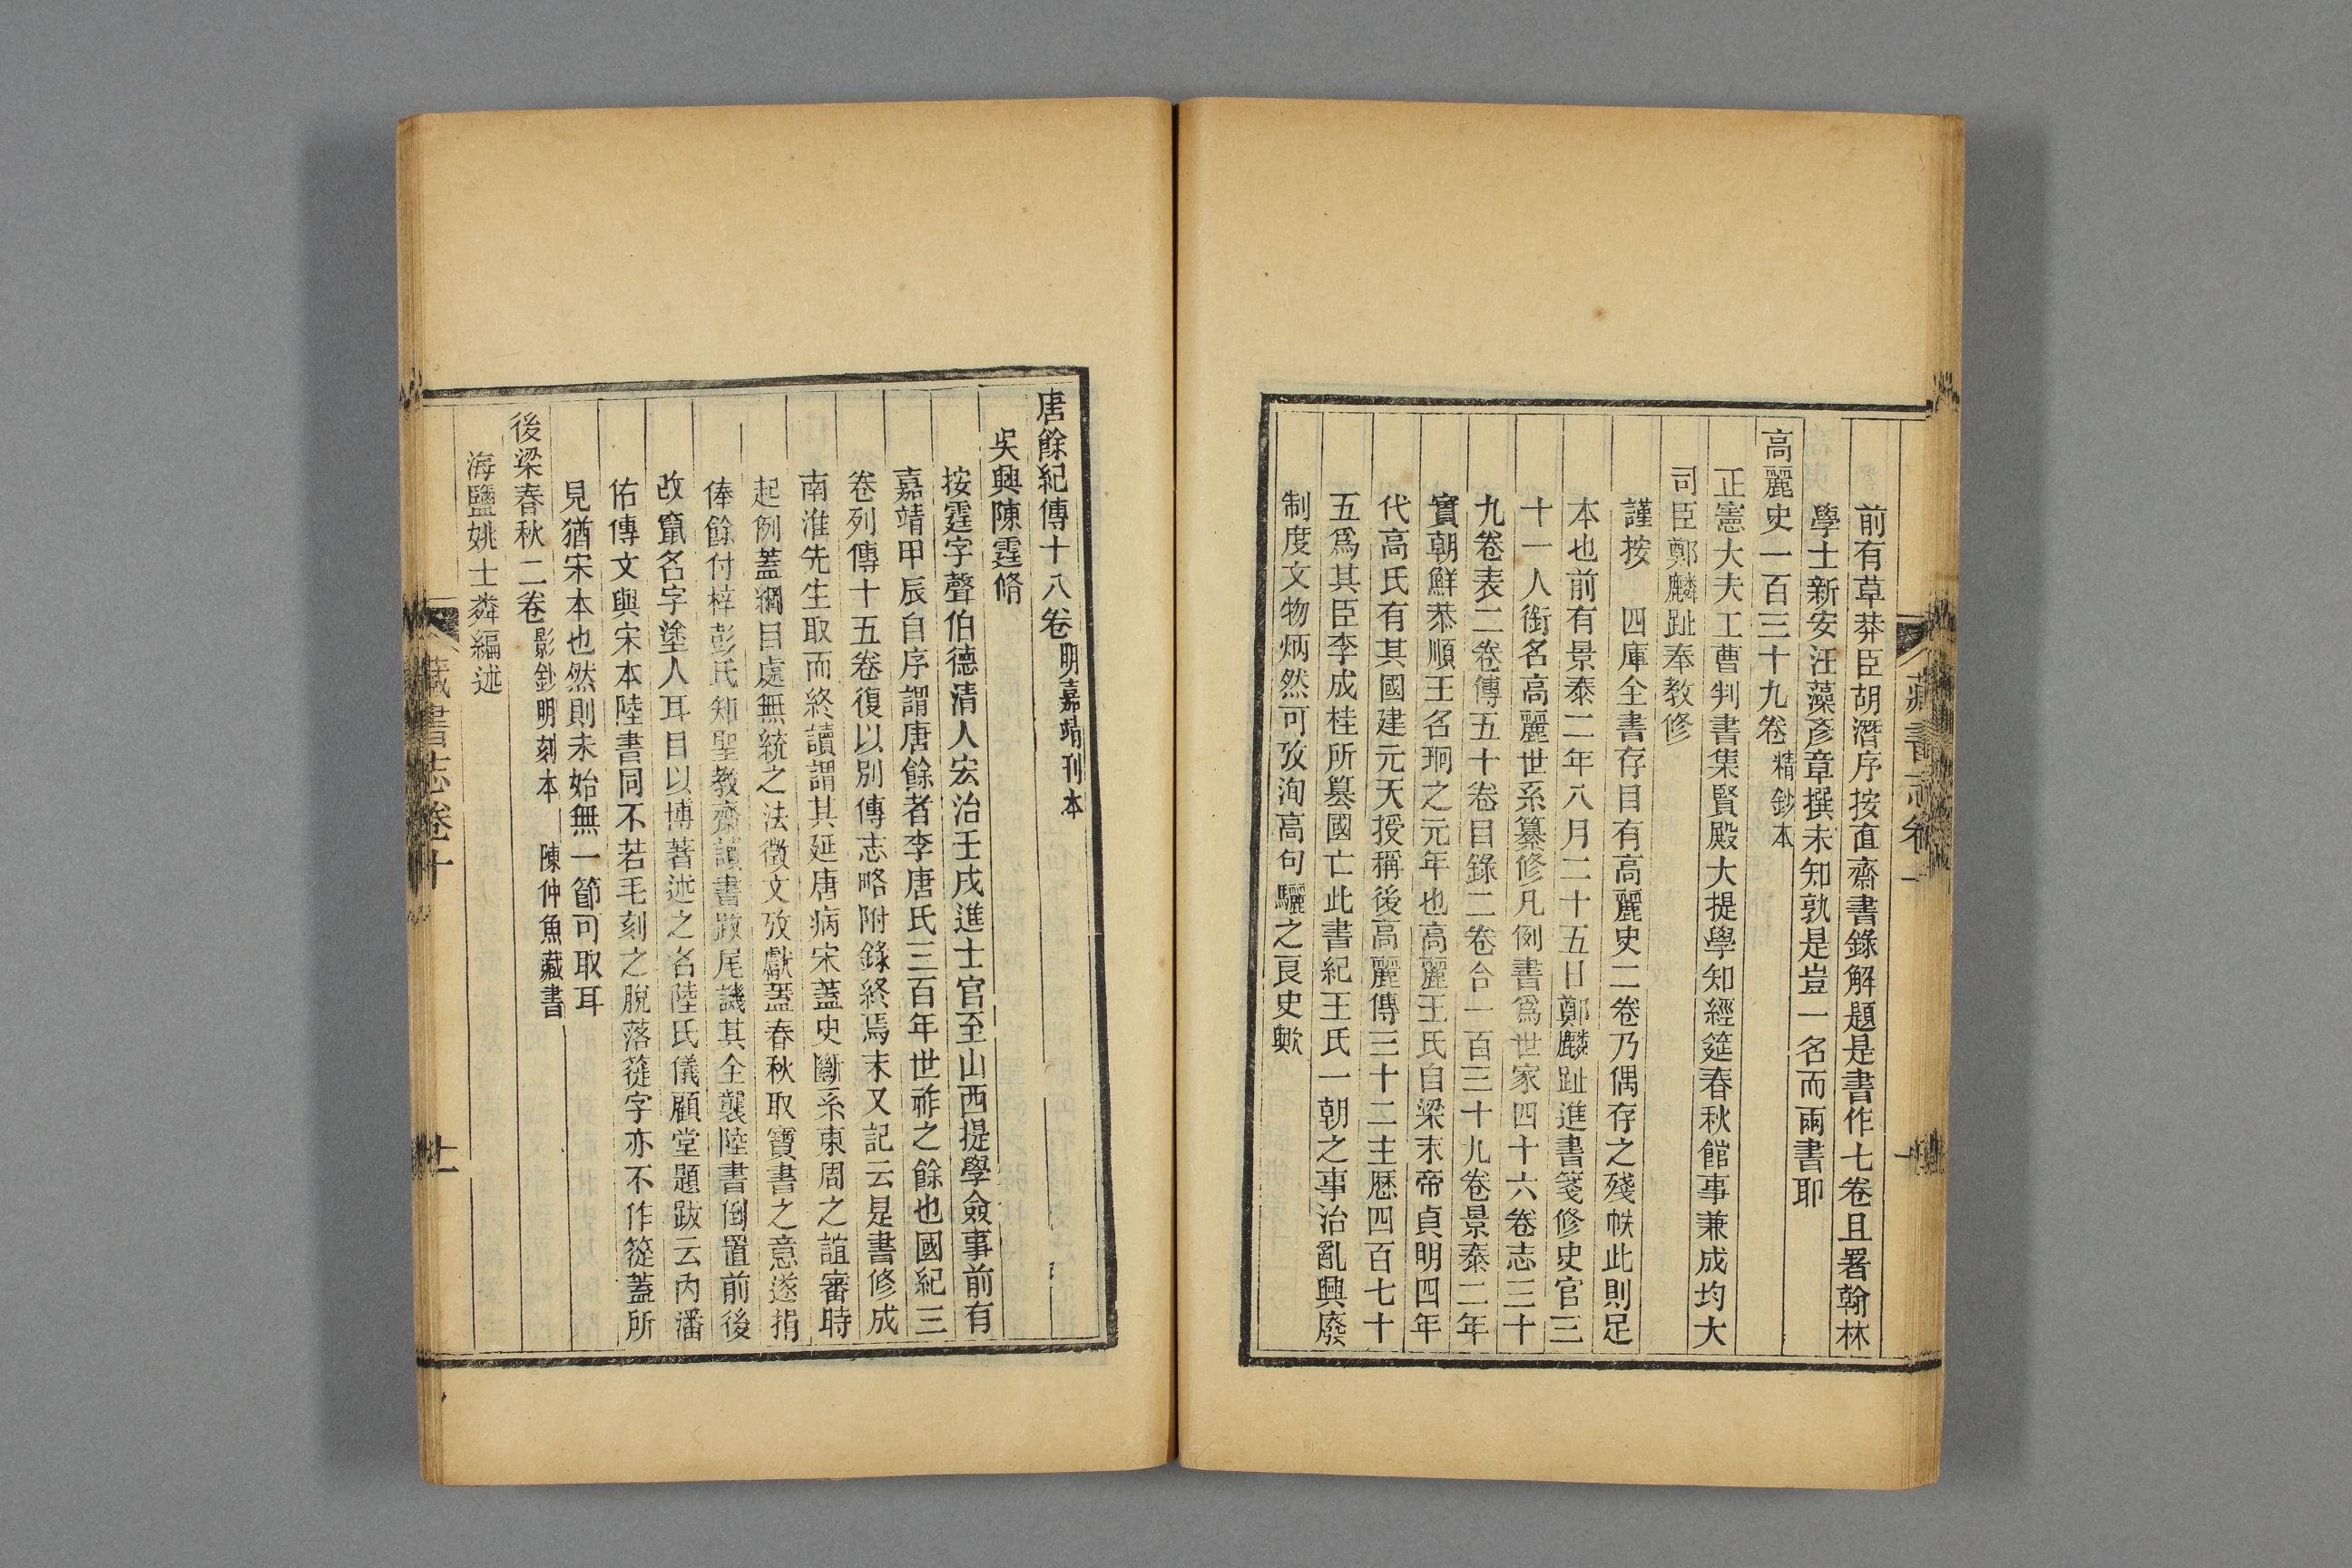 前有草莽臣胡潛序按直齋書錄解題是書作七卷且署翰林
學士新安汪藻彥章撰未知孰是豈一名而兩書耶
高麗史一百三十九卷 精鈔本
正憲大夫工曹判書集賢殿大提學知經筵春秋館事兼成均大
司臣鄭麟趾奉教修
謹按 四庫全書存目有高麗史二卷乃偶存之殘帙此則足
本也前有景泰二年八月二十五日鄭麟趾進書箋修史官三
十一人銜名高麗世系纂修凡例書爲世家四十六卷志三十
九卷表二卷傳五十卷目錄二卷合一百三十九卷景泰二年
實朝鮮恭順王名珦之元年也高麗王氏自梁末帝貞明四年
代高氏有其國建元天授稱後高麗傳三十二主歷四百七十
五爲其臣李成桂所簒國亡此書紀王氏一朝之事治亂興廢
制度文物炳然可攷洵高句驪之良史歟
唐餘紀傳十八卷 明嘉靖刊本
吳興陳霆脩
按霆字聲伯德清人宏治壬戌進士官至山西提學僉事前有
嘉靖甲辰自序謂唐餘者李唐氏三百年世祚之餘也國紀三
卷列傳十五卷復以別傳志略附錄終焉末又記云是書修成
南淮先生取而終讀謂其延唐病宋蓋史斷系東周之誼審時
起例蓋綱目處無統之法徵文攷獻蓋春秋取寶書之意遂捐
俸餘付梓彭氏知聖教齋讀書跋尾譏其全襲陸書倒置前後
改竄名字塗人耳目以博著述之名陸氏儀顧堂題跋云內潘
佑傳文與宋本陸書同不若毛刻之脫落簁字亦不作簁蓋所
見猶宋本也然則未始無一節可取耳
後梁春秋二卷 影鈔明刻本 陳仲魚藏書
海鹽姚士粦編述
藏書志卷十
十一